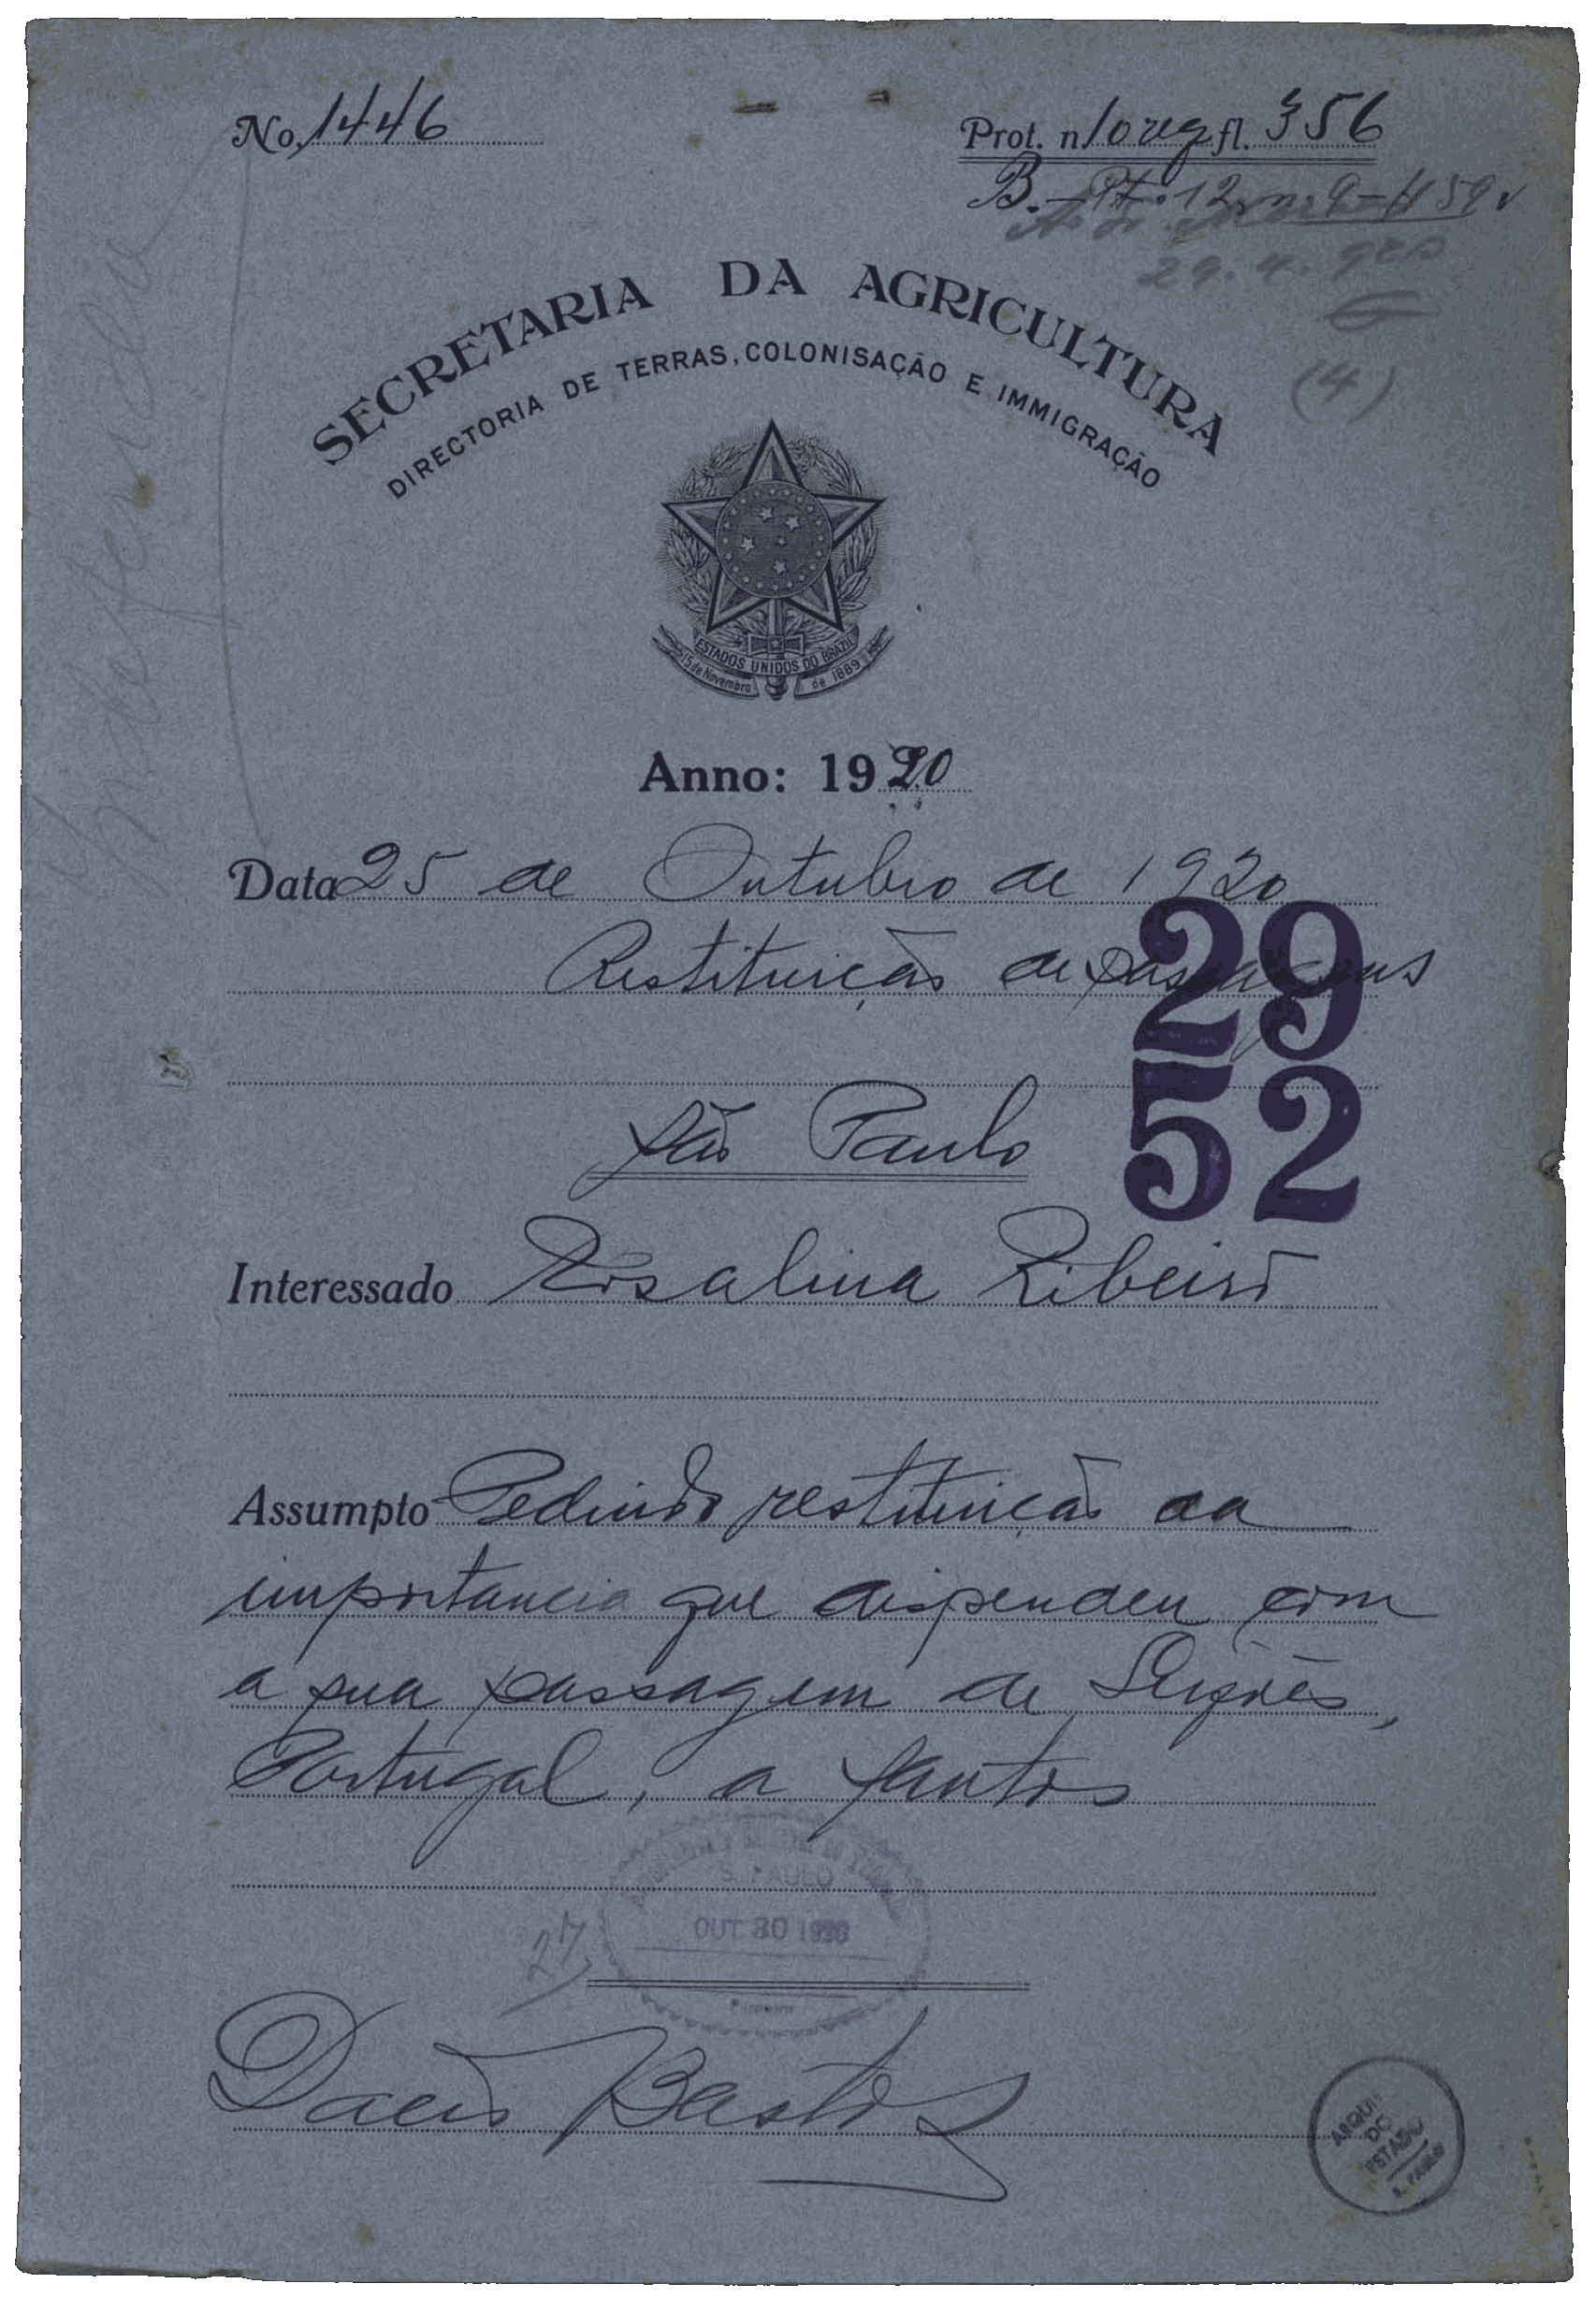 No. 1446
Prot. n 10 reg fl. 356
B. - Pt. 12, n. 9 - fl 59 v
29. 4.
(4)
SECRETARIA DA AGRICULTURA
DIRECTORIA DE TERRAS, COLONISAÇÃO E IMMIGRAÇÃO
ESTADOS UNIDOS DO BRAZIL
15 de Novembro de 1889
Anno: 1920
Data 25 de Outubro de 1920
Restituição de passagens
29
52
São Paulo
Interessado Rosalina Ribeiro
Assumpto Pedindo restituição da
importancia que dispendeu com
a sua passagem de Leixões,
Portugal, a Santos
S. PAULO
OUT 30 1920
27
Dacio Bastos
ARQUI
DO
ESTADO
S. PAULO